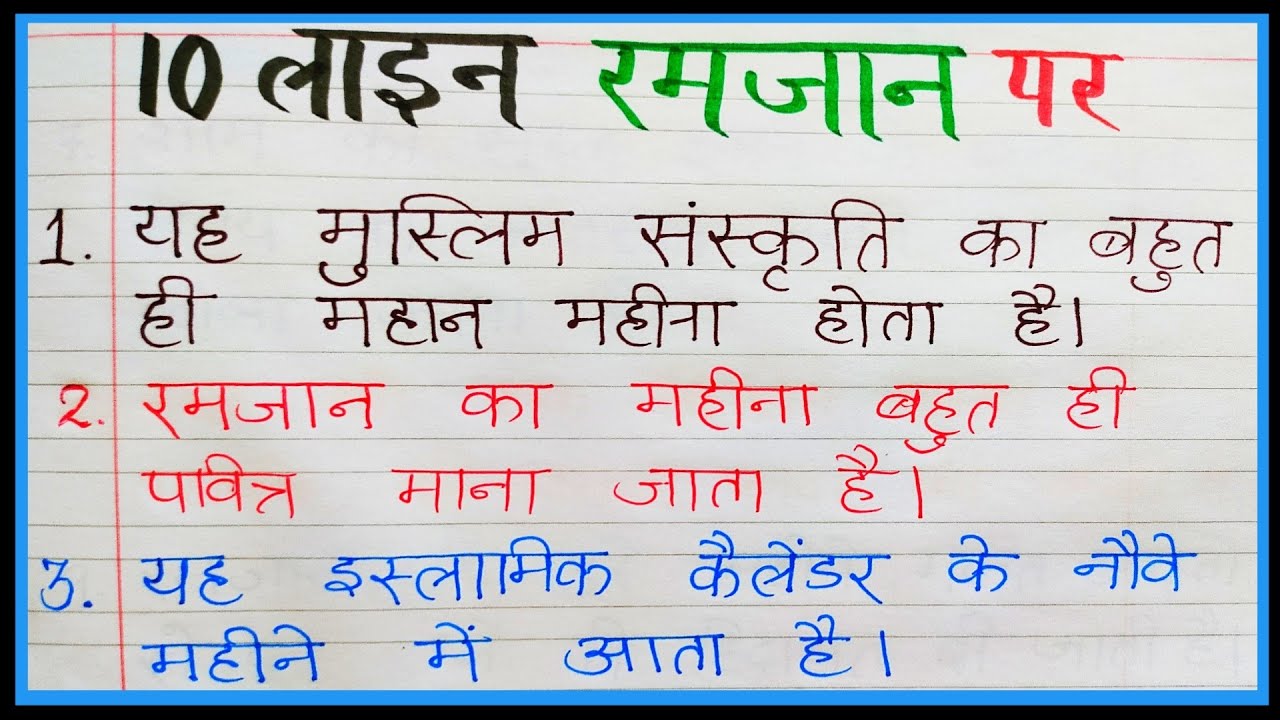 10 लाइन रमजान पर
1. यह मुस्लिम संस्कृति का बहुत
ही महान महीना होता है।
2. रमजान का महीना बहुत ही
पवित्र माना जाता है।
3. यह इस्लामिक कैलेंडर के नौवे
महीने में आता है।